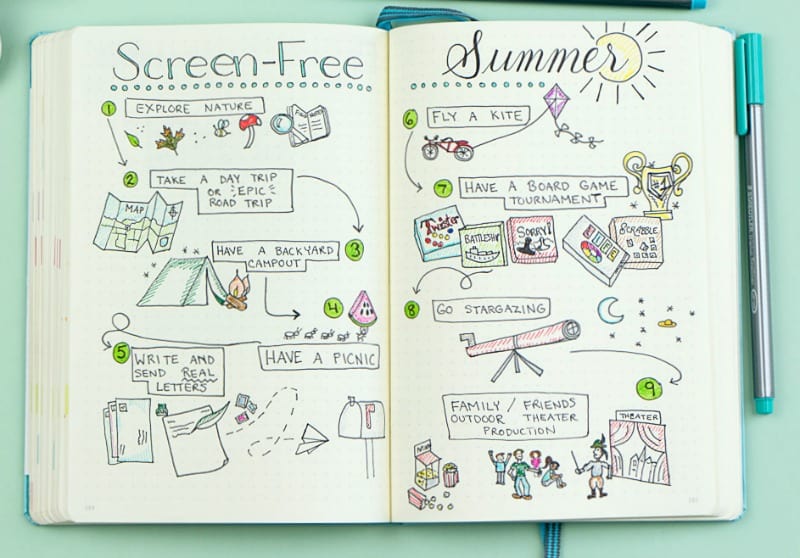 Screen-Free
Summer
1 EXPLORE NATURE
FIELD NOTES
2 TAKE A DAY TRIP
OR EPIC
ROAD TRIP
MAP
3 HAVE A BACKYARD
CAMPOUT
4 HAVE A PICNIC
5 WRITE AND
SEND REAL
LETTERS
6 FLY A KITE
7 HAVE A BOARD GAME
TOURNAMENT
#1
Twister
BATTLESHIP
SORRY!
LIFE
SCRABBLE
8 GO STARGAZING
9 FAMILY / FRIENDS
OUTDOOR THEATER
PRODUCTION
THEATER